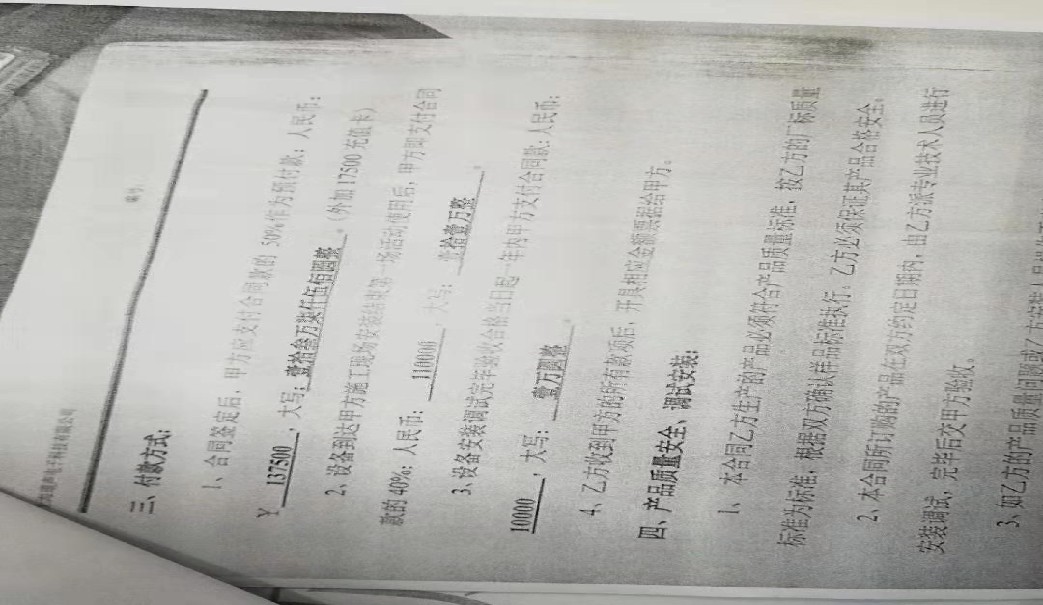 声电子科技有限公司
编号:
三、付款方式:
1、合同签定后，甲方应支付合同款的 50%作为预付款；人民币：
￥ 137500 ，大写: 壹拾叁万柒仟伍佰圆整 。(外加 17500 充值卡)
2、设备到达甲方施工现场安装结束第一场活动使用后，甲方即支付合同
款的 40%; 人民币: 110000 ，大写: 壹拾壹万整 。
3、设备安装调试完毕验收合格当日起一年内甲方支付合同款: 人民币:
10000 ，大写: 壹万圆整 。
4、乙方收到甲方的所有款项后，开具相应金额票据给甲方。
四、产品质量安全、调试安装:
1、 本合同乙方生产的产品必须符合产品质量标准，按乙方的厂标质量
标准为标准，根据双方确认样品标准执行。乙方必须保证其产品合格安全。
2、本合同所订购的产品在双方约定日期内，由乙方派专业技术人员进行
安装调试，完毕后交甲方验收。
3、如乙方的产品质量问题或乙方安装人员